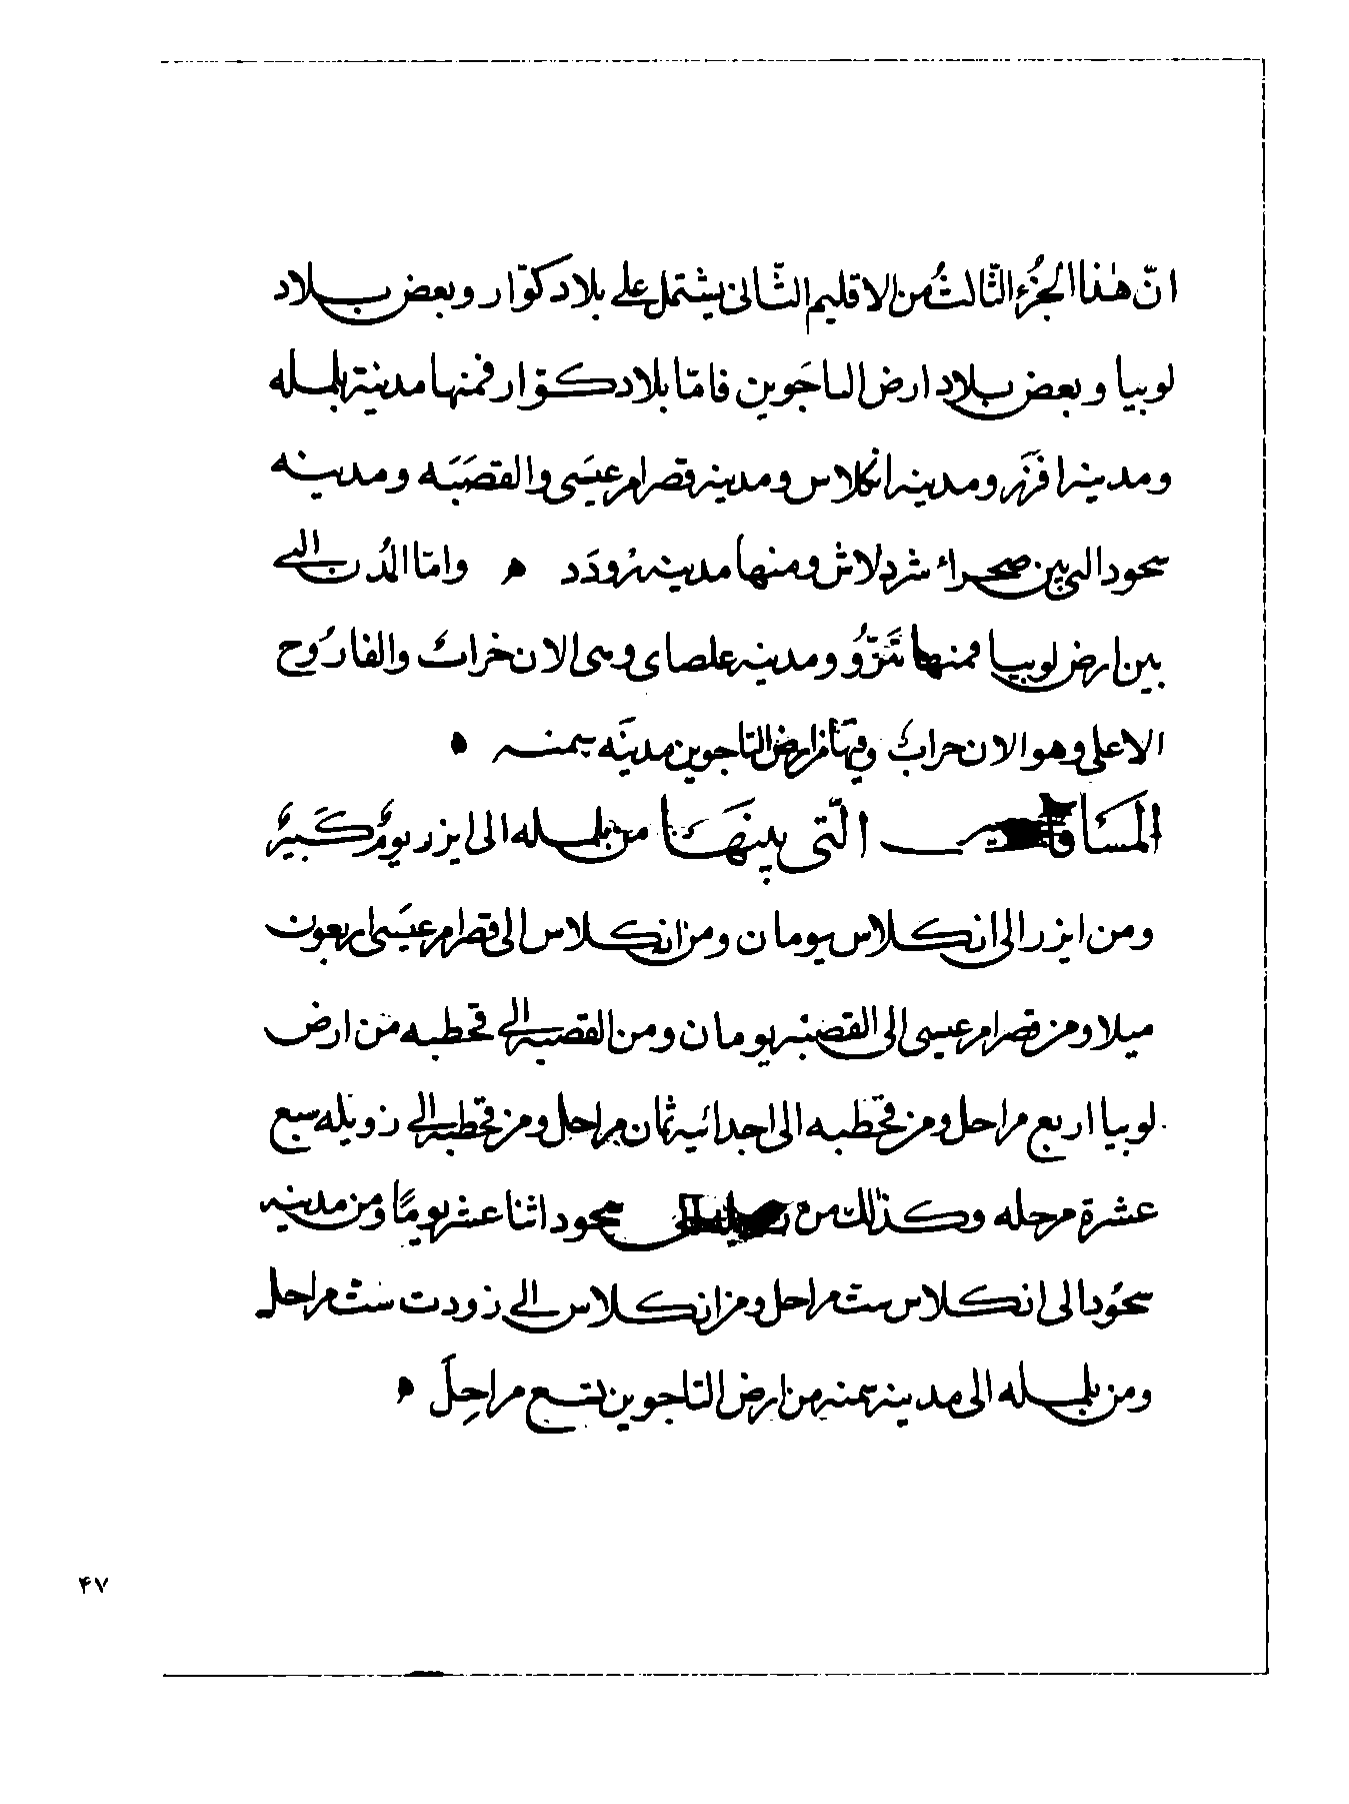 انّ هٰذا الجُزءُ الثّالثُ من الاقليم الثّانى يشتمل على بلاد كوّار وبعض بلاد
لوبيا وبعض بلاد ارض الىاجَوين فامّا بلاد كوّار فمنها مدينة بلمله
ومدينه افزَر ومدينه انكلاس ومدينه قصر ام عيسَى والقصَبَه ومدينه
سحود التى بين صحراء شردلاش ومنها مدينه زودَد ه وامّا المدُن التى
بين ارض لوبيا فمنها تَزّوُ ومدينه علصاى وهى الان خرابٌ والفارُوح
الاعلى وهو الان حرابٌ وفيهَا من ارض التاجوين مدينَه سمنه ه
المَسَافا الّتى بينهَا من بلمله الى ايزر يومٌ كَبيرٌ
ومن ايزر الى انكلاس يومان ومن انكلاس الى قصر ام عيسَى اربعون
ميلا ومن قصر ام عيسى الى القصبه يومان ومن القصبه الى قحطبه من ارض
لوبيا اربع مراحل ومن قحطبه الى اجدائيه ثمان مراحل ومن قحطبه الى زويله سبع
عشرة مرحله وكذالك من سحود اثنا عشر يومًا ومن مدينه
سحوُد الى انكلاس ستّ مراحل ومن انكلاس الى زودت ستّ مراحل
ومن بلمله الى مدينه سمنه من ارض التاجوين تسع مراحِلَ ه
۴۷